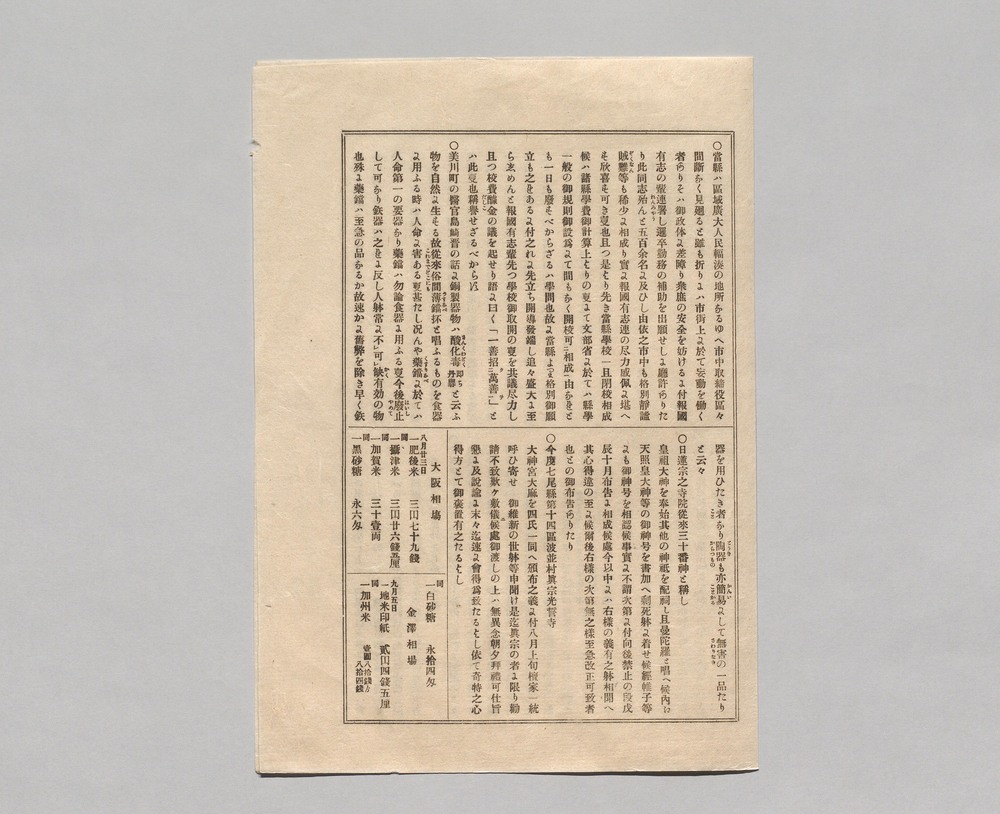 〇當縣ハ區域廣大人民輻湊の地所なるゆへ市中取締役區々
間斷なく見廻ると雖も折りよハ市街上よ於て妄動を働く
者ありそハ御政体よ差障り衆庶の安全を妨けるよ付報國
有志の輩連署し邏卒勤務の補助を出願せしよ廳許ありた
り此同志殆んと五百余名よ及ひし由依之市中も格別靜謐
賊難等も稀少よ相成り實よ報國有志連の尽力感佩よ堪へ
も欣喜そ可き叓也且つ是より先き當縣學校一旦閉校相成
候ハ諸縣學費御計算上よりの叓よて文部省よ於てハ縣學
一般の御規則御設爲よて間もなく開校可ニ相成一由なりと
も一日も廢そべからざるハ學問也故よ當縣よても格別御願
立も之をあるよ付之れよ先立ち開導發端し追々盛大よ至
らゑめんと報國有志輩先つ學校御取開の叓を共議尽力し
且つ校費醵金の議を起せり語よ曰く「一善招ニ萬善一」と
ハ此叓也稱誉せざるべからに
〇美川町の醫官島崎晋の話よ銅製器物ハ酸化毒即ち丹礬と云ふ
物を自然よ生そる故從來俗間薄鐺抔と唱ふるものを食器
よ用ふる時ハ人命よ害ある叓甚だし况んや藥鐺よ於てハ
人命第一の要器なり藥鐺ハ勿論食器よ用ふる叓今後廢止
して可なり鉄器ハ之をよ反し人躰常よ不レ可レ缺有効の物
也殊よ藥鐺ハ至急の品なるか故速かよ舊弊を除き早く鉄
器を用ひたき者なり陶器も亦簡易よして無害の一品たり
と云々
〇日連宗之寺院從來三十番神と稱し
皇祖大神を奉始其他の神祇を配祠し且曼陀羅と唱へ候内に
天照皇大神等の御神号を書加へ剩死躰よ着せ候經帷子等
よも御神号を相認候事實よ不謂次第よ付向後禁止の段戊
辰十月布告よ相成候處今以中よハ右樣の義有之躰相聞へ
其心得違の至よ候爾後右樣の次第無之樣至急改正可致者
也との御布告ありたり
〇今度七尾縣第十四區波並村眞宗光誓寺
大神宮大麻を四氏一同へ頒布之義よ付八月上旬檀家一統
呼ひ寄せ　御維新の世躰等申聞け是迄眞宗の者よ限り勸
請不致歎ケ敷儀候處御渡しの上ハ無異念朝夕拜禮可仕旨
懇よ及說諭よ末々迄速よ會得爲致たるよし依て奇特之心
得方とて御褒置有之たるよし
大阪相塲
八月廿三日
一肥後米　三円七十九錢
同
一攝津米　三円廿六錢五厘
同
一加賀米　三十壹両
同
一黒砂糖　永六匁
同
一白砂糖　永拾四匁
金澤相塲
九月五日
一地米印紙　貳円四錢五厘
同
一加州米　壹圓八拾四錢